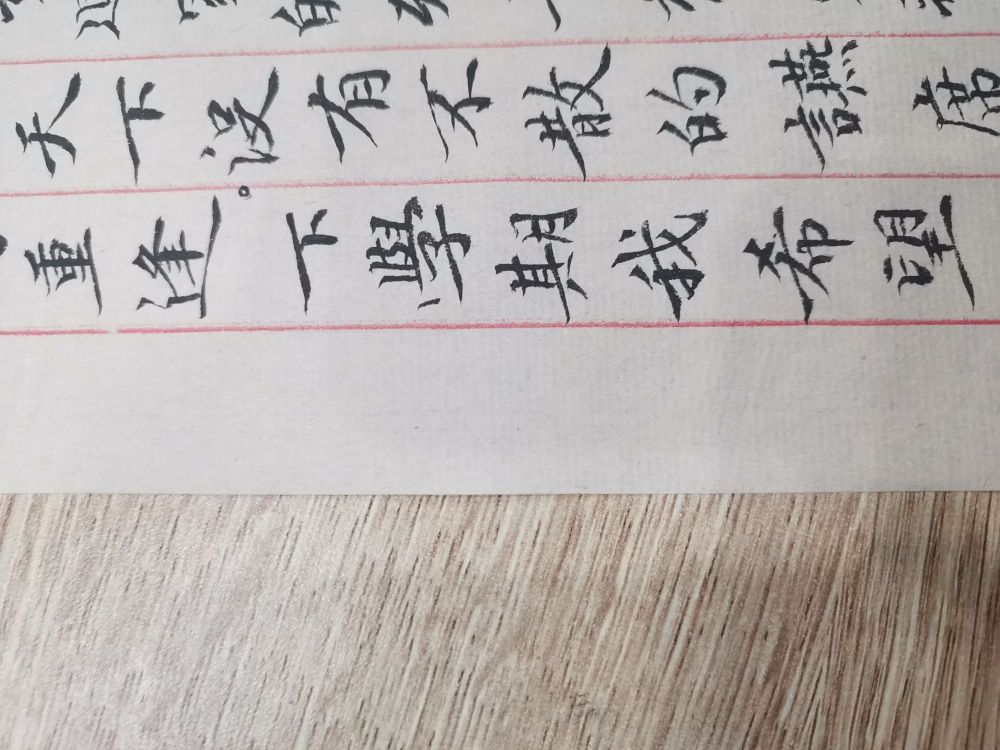 天下没有不散的讌席
重逢。下學期我希望